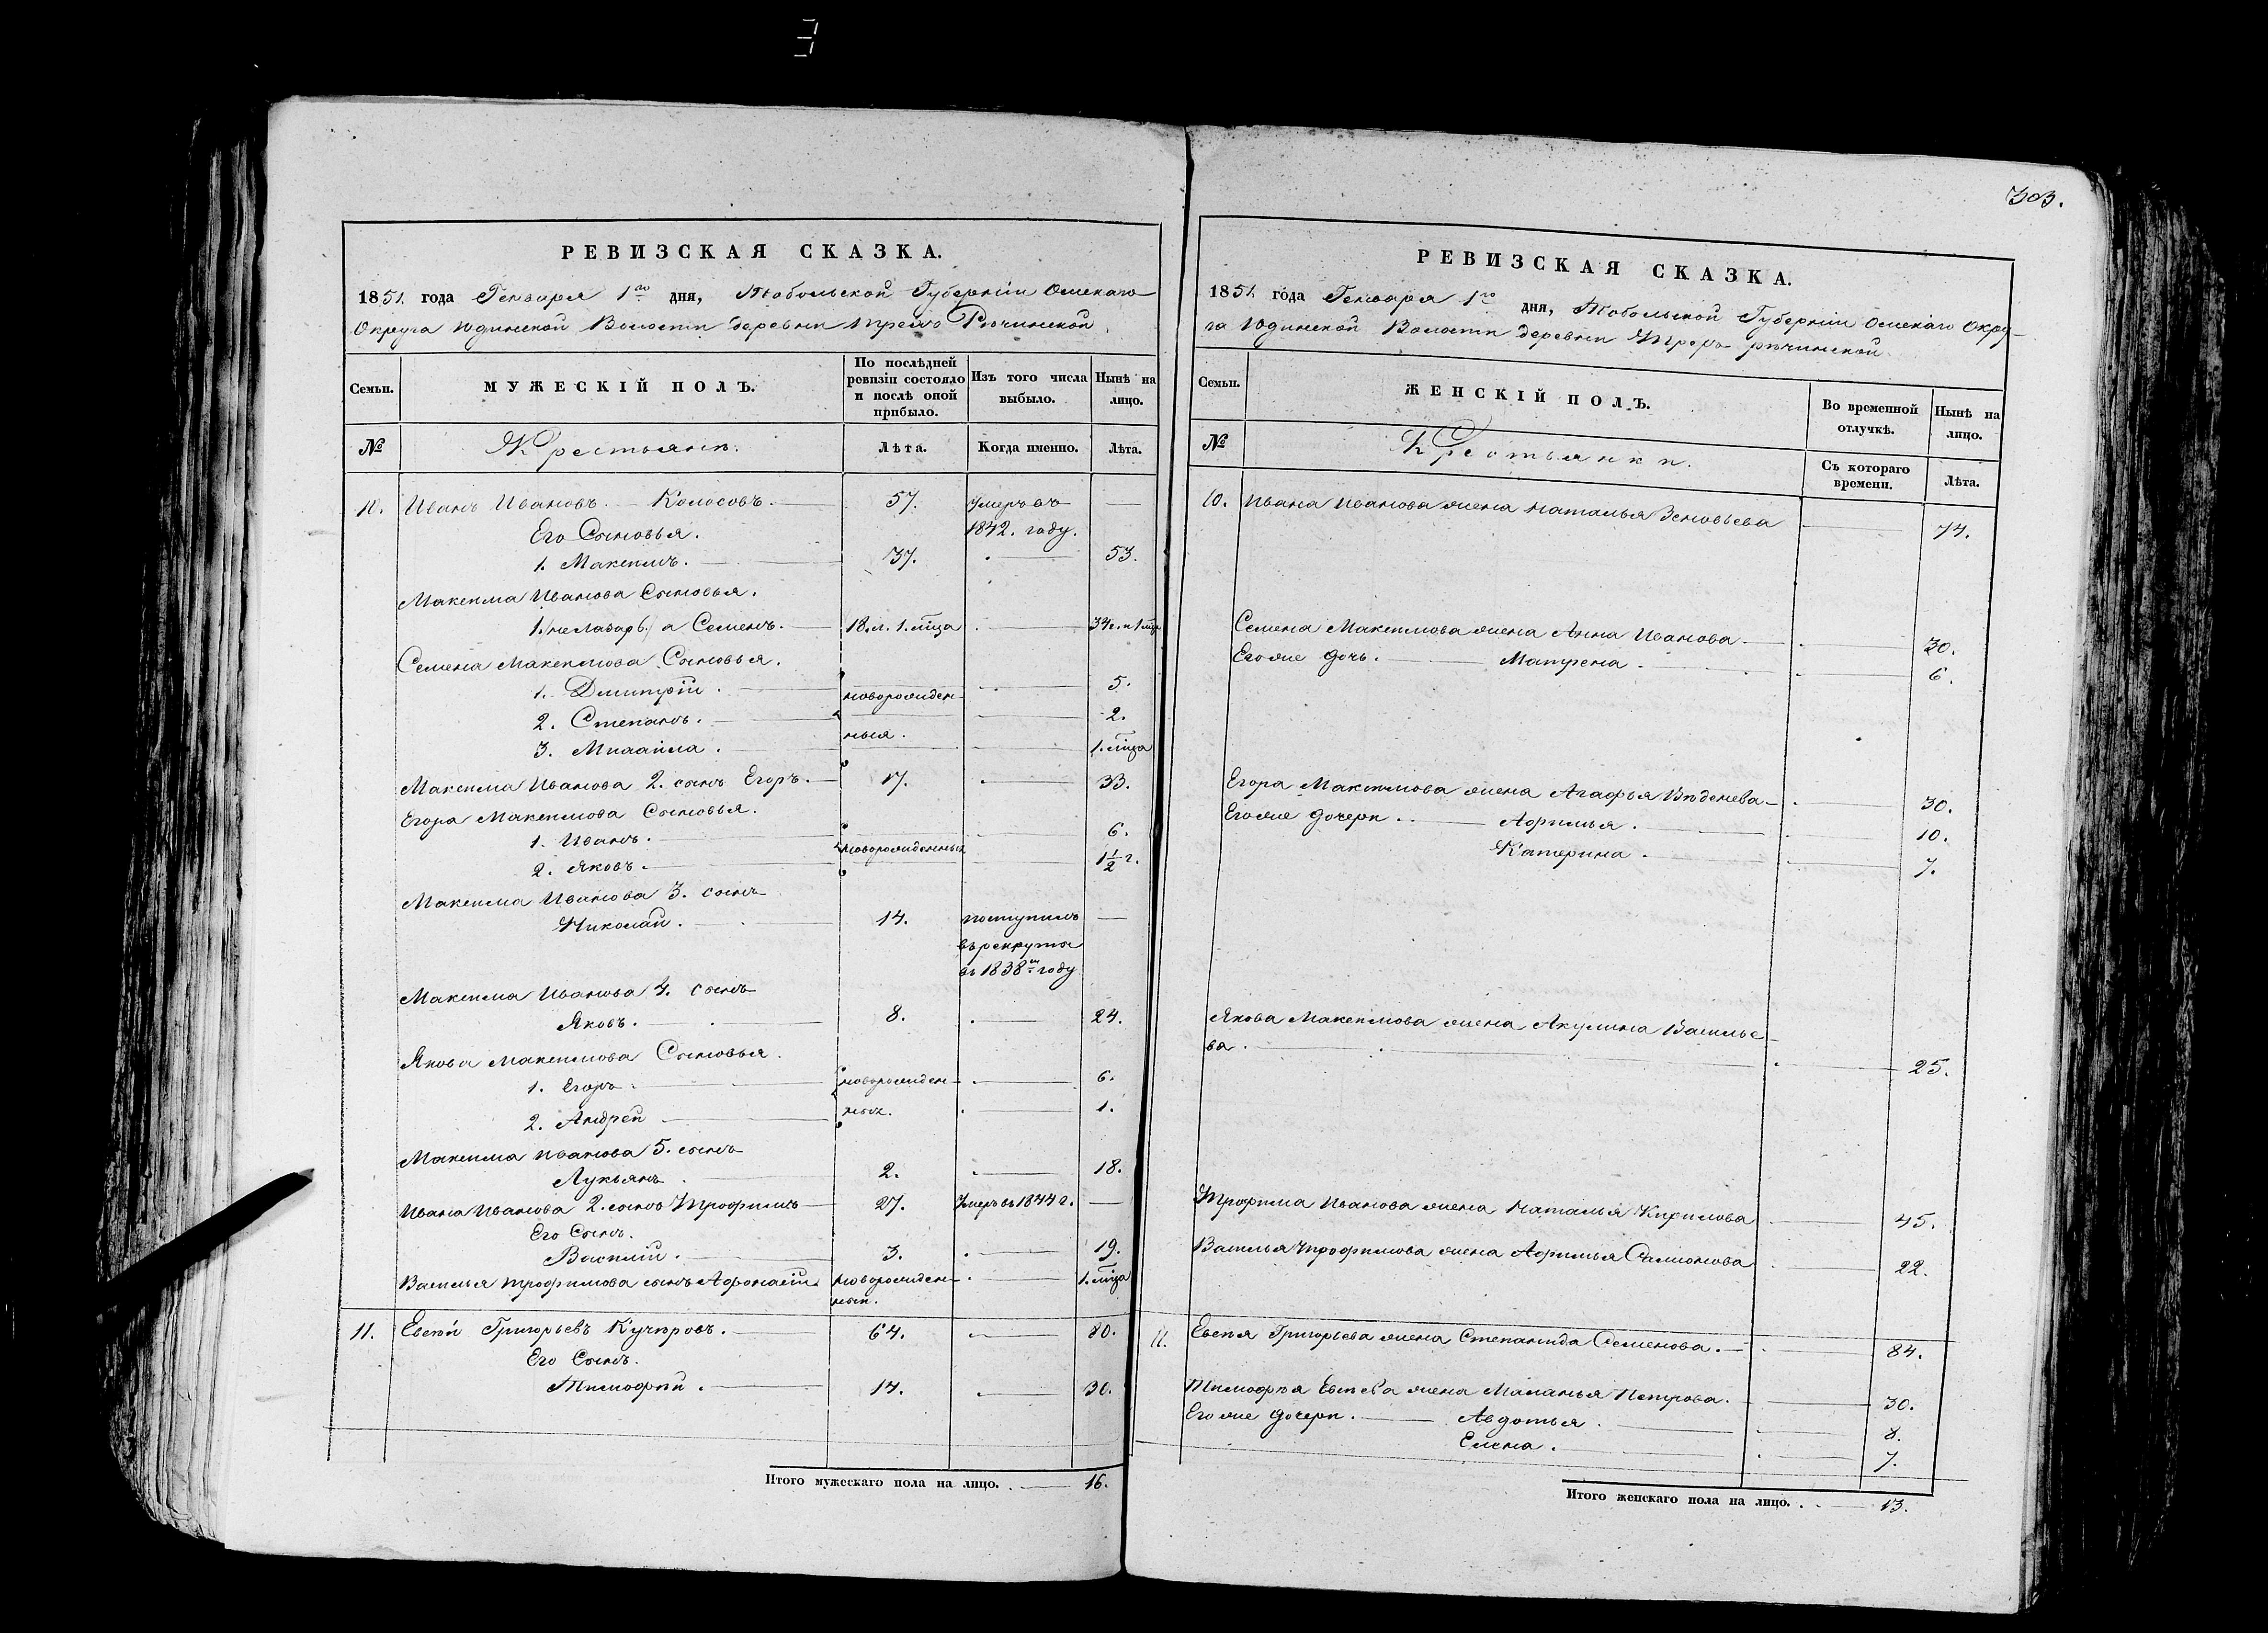 303.
РЕВИЗСКАЯ СКАЗКА.
1851. года Генваря 1го дня, Тобольской Губерніи Омскаго
Округа Юдинской Волости деревни
Семьи.
МУЖЕСКІЙ ПОЛЪ.
По послѣдней
ревизіи состояло
и послѣ оной
прибыло.
Изъ того числа
выбыло.
Нынѣ на
лицо.
№
Крестьяне.
Лѣта.
Когда именно.
Лѣта.
10. Иванъ Ивановъ. Колосовъ. 57. Умеръ въ —
Его Сыновья. 1842. году.
1. Максимъ. 37. 53.
Максима Иванова Сыновья.
1. (не Лазарь.) а Семенъ. 18. л. 1. мца 34 г. и 1 мца
Семена Максимова Сыновья.
1. Дмитрій. новорожден- 5.
2. Степанъ. 2.
ныя.
3. Михайла. 1. мца
Максима Иванова 2. сынъ Егоръ. 17. 33.
Егора Максимова Сыновья.
1. Иванъ. 6.
новорожденныя
2. Яковъ. 1½ г.
Максима Иванова 3. сынъ
Николай. 14. поступилъ —
въ рекруты
въ 1838м году.
Максима Иванова 4. сынъ
Яковъ. 8. 24.
Якова Максимова Сыновья.
1. Егоръ. новорожден- 6.
2. Андрей ныя. 1.
Максима Иванова 5. сынъ
Лукьянъ. 2. 18.
Ивана Иванова 2. сынъ Трофимъ 27. Умеръ въ 1844 г. —
Его Сынъ.
Василій. 3. 19.
Василья Трофимова сынъ Афонасій. новорожден- 1. мца
ный.
11. Евсѣй Григорьевъ Кучѣровъ. 64. 80.
Его Сынъ.
Тимофѣй. 14. 30.
Итого мужескаго пола на лицо. . 16.
РЕВИЗСКАЯ СКАЗКА.
1851. года Генваря 1го дня, Тобольской Губерніи Омскаго Окру-
га Юдинской Волости деревни
Семьи.
ЖЕНСКІЙ ПОЛЪ.
Во временной
отлучкѣ.
Нынѣ на
лицо.
№
Крестьянки.
Съ котораго
времени.
Лѣта.
10. Ивана Иванова жена Наталья Зеновьева 74.
Семена Максимова жена Анна Иванова. 30.
Его же дочь. Матрена. 6.
Егора Максимова жена Агафья 30.
Его же дочери. Афимья. 10.
Катерина. 7.
Якова Максимова жена Акулина Василье-
ва. 25.
Трофима Иванова жена Наталья Кирилова 45.
Василья Трофимова жена Афимья 22.
11. Евсѣя Григорьева жена Степанида Семенова. 84.
Тимофѣя Евсѣева жена Маланья Петрова. 30.
Его же дочери. Авдотья. 8.
Елена. 7.
Итого женскаго пола на лицо. . . 13.